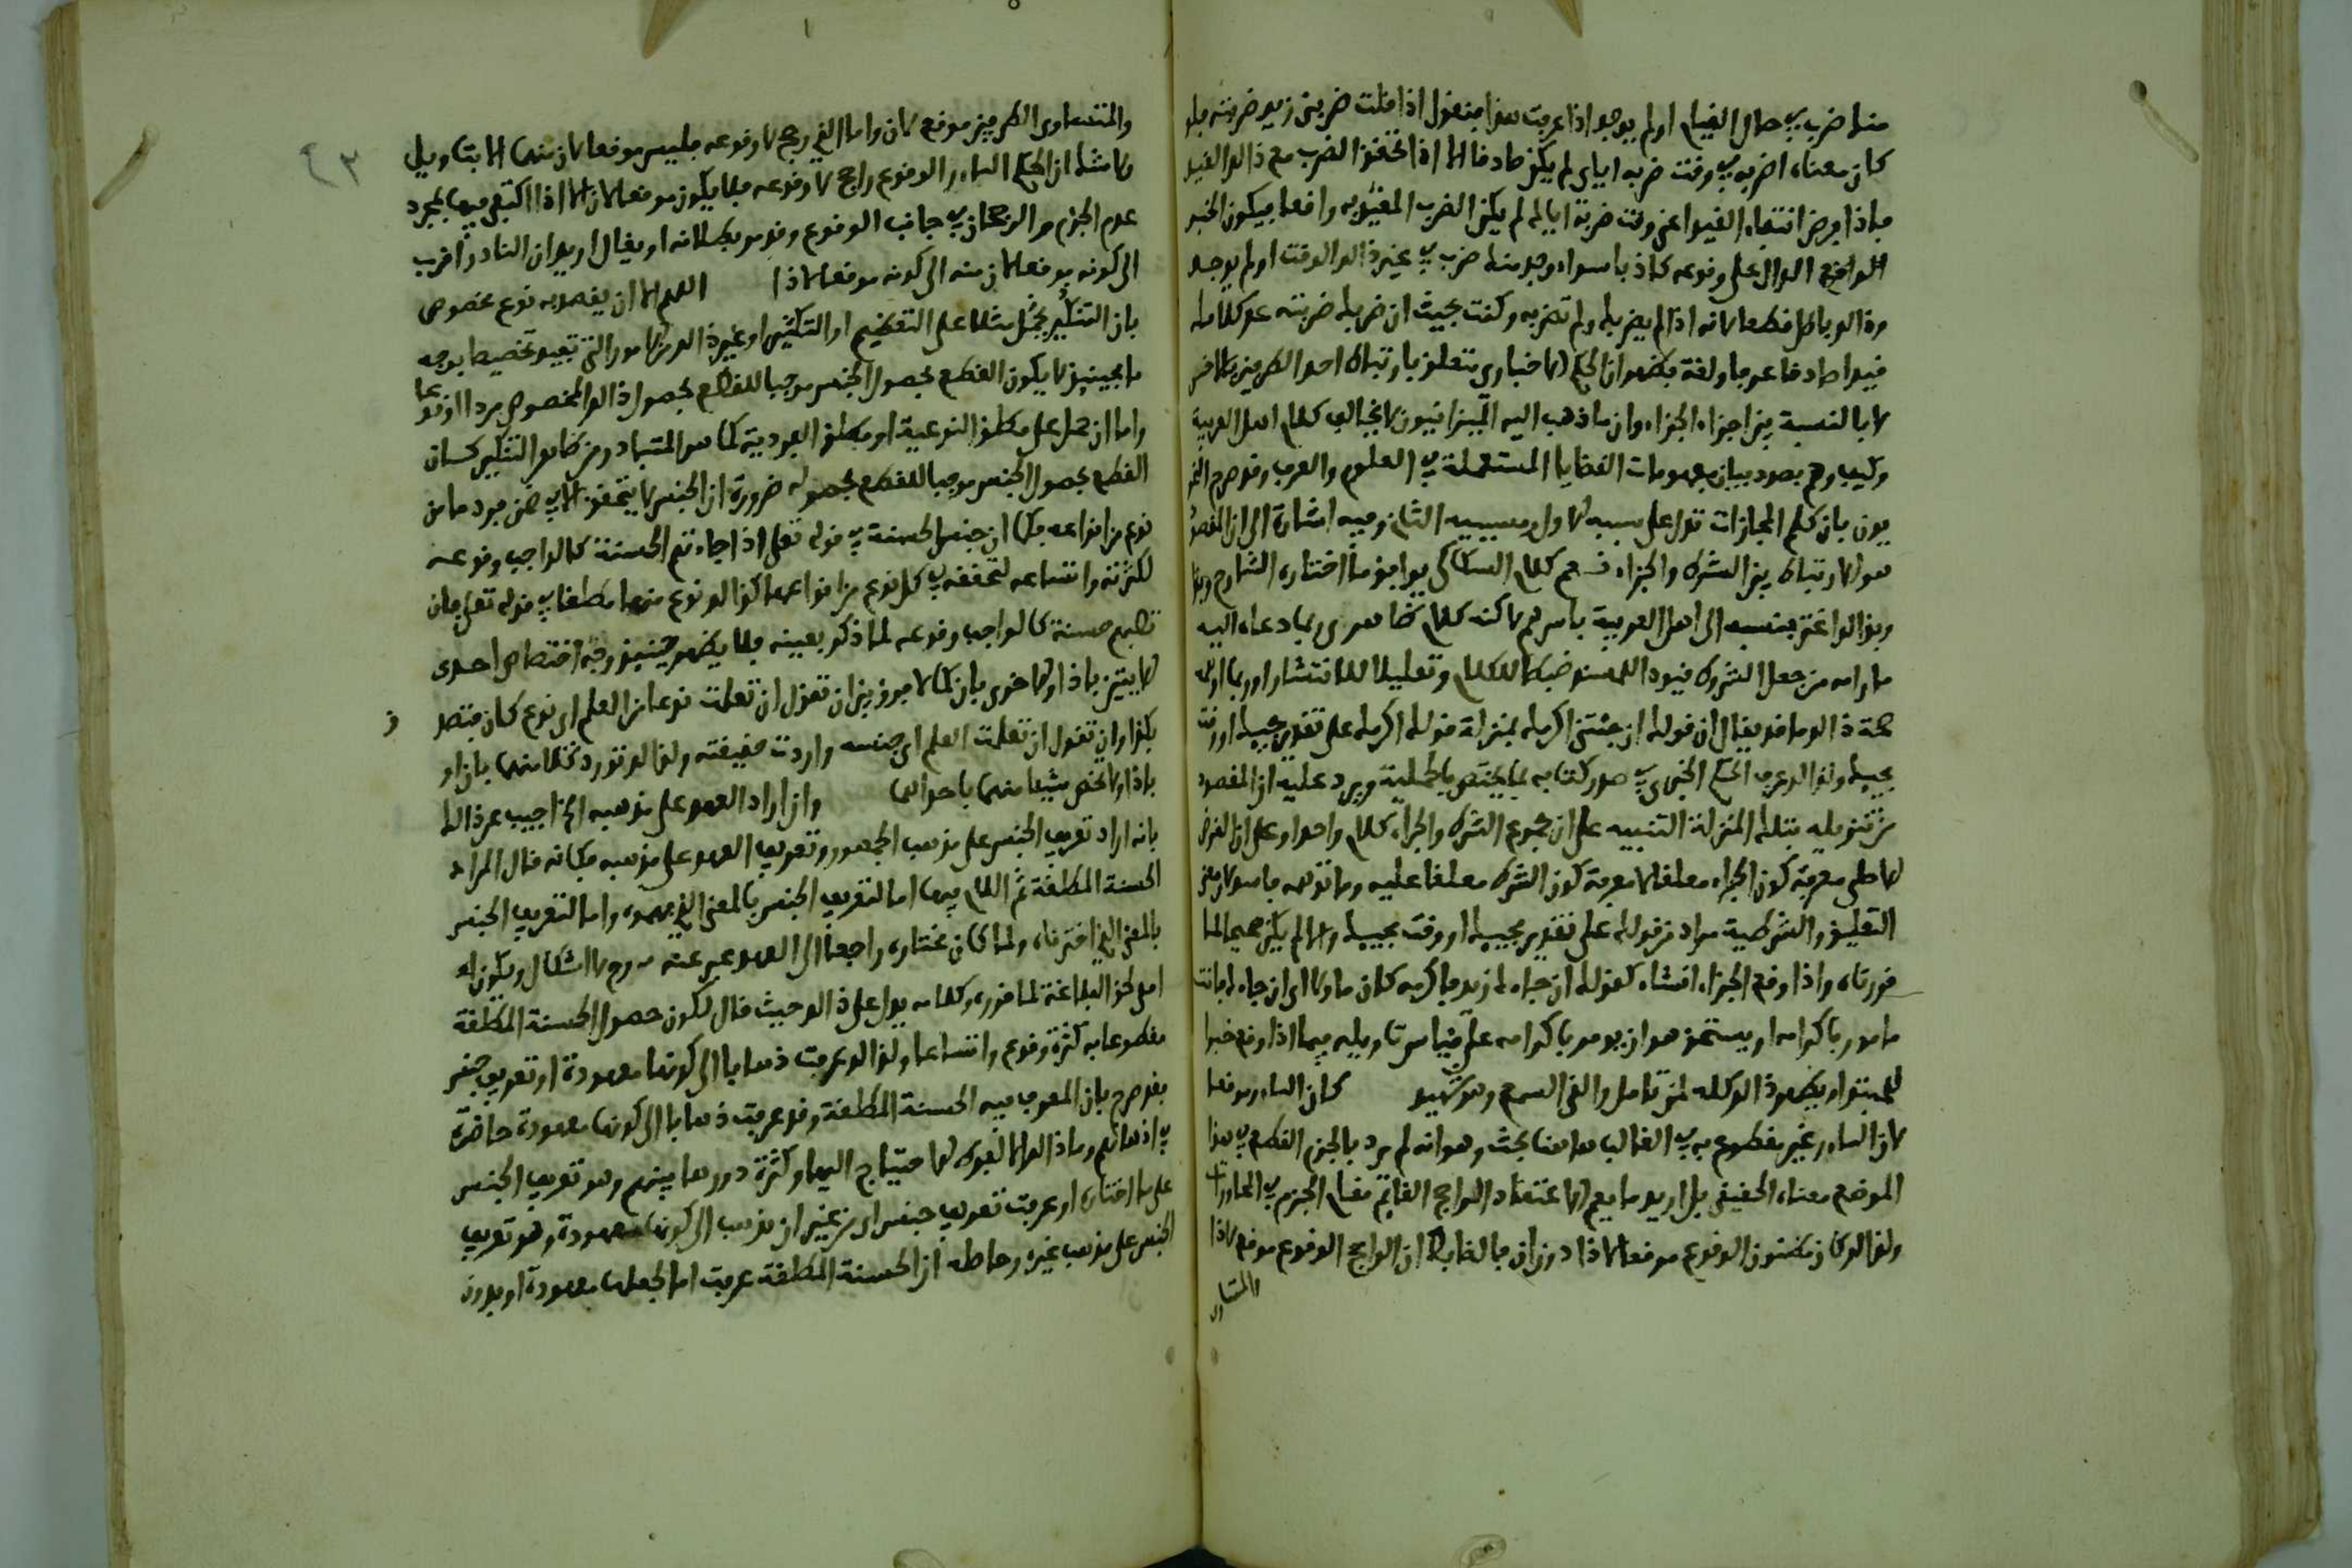 منك ضرب في حال القيام او لم يوجد اذا عرفت هذا فنقول اذا قلت ضربني زيد ضربته فلو
كان معناه اضربه في وقت ضربه اياي لم يكن صادقا الا اذا تحقق الضرب مع ذلك القيد
فاذا فرض انتفاء القيد اعني وقت ضربه اياك لم يكن الضرب المقيد به واقعا فيكون الخبر
الدال على وقوعه كاذبا سواء وجد منك ضرب في غير ذلك الوقت او لم يوجد
وذلك باطل قطعا لانه اذا لم يضربك ولم تضربه وكنت بحيث ان ضربك ضربته عد كلامك
صادقا عرفا ولغة فظهر ان الحكم الاخباري متعلق بارتباط احد الطرفين بالاخر
لا بالنسبة بين اجزاء الجزاء وان ما ذهب اليه الميزانيون لا يخالف كلام اهل العربية
وكيف وهم بصدد بيان مفهومات القضايا المستعملة في العلوم والعرف وقد صرح النحو
يون بان كلم المجازات تدل على سببية الاول ومسببية الثاني وفيه اشارة الى ان المقصود
هو الارتباط بين الشرط والجزاء نعم كلام السكاكي يوافق ما اختاره الشارح
وبذلك اغتر فنسبه الى اهل العربية باسرهم لاكنه كلام ظاهري بما دعاه اليه
ما رامه من جعل الشروط قيود المسند ضبطا للكلام وتقليلا للانتشار
صحة ذلك ما قد يقال ان قولك ان جئتني اكرمك بمنزلة قولك اكرمك على تقدير مجيئك او وقت
مجيئك ولذلك عرف الحكم الخبري في صدر كتابه بما يختص بالحملية ويرد عليه ان المقصود
من تنزيله بتلك المنزلة التنبيه على ان مجموع الشرط والجزاء كلام واحد وعلى ان الغرض
الاصلي معرفة كون الجزاء معلقا لا معرفة كون الشرط معلقا عليه وما توهمه فاسد لان معنى
التعليق والشرطية مراد من قولك على تقدير مجيئك او وقت مجيئك والا لم يكن صحيحا لما
قررناه واذا وقع الجزاء انشاء كقولك ان جاءك زيد فاكرمه كان ماولا اي ان جاءك فانت
مامور باكرامه او يستحق هو ان يومر باكرامه على قياس تاويله فيما اذا وقع خبرا
للمبتدا ويظهر ذلك كله لمن تامل والقى السمع وهو شهيد كان النادر موقعا
لان النادر غير مقطوع به في الغالب هاهنا بحث وهو انه لم يرد بالجزم القطع في هذا
الموضع معناه الحقيقي بل اريد ما يعم الاعتقاد الراجح القائم مقام الجزم في المحاورات
ولذلك كان مظنون الوقوع موقعا لاذا دون ان فالضابط ان الراجح الوقوع موقع لاذا
والمتساوي
والمتساوي الطرفين موقع لان واما الذي رجح لا وقوعه فليس موقعا لان منهما الا بتاويل
ولا شك ان الحكم النادر الوقوع راجح لا وقوعه فلا يكون موقعا لان الا اذا اكتفي فيها بمجرد
عدم الجزم والرجحان في جانب الوقوع وقد مر بطلانه او يقال اريد ان النادر اقرب
الى كونه موقعا لان منه الى كونه موقعا لاذا اللهم الا ان يقصد به نوع مخصوص
بان التنكير يحمل مثلا على التعظيم او التكثير او غير ذلك من الامور التي تفيد تخصيصا بوجه
ما فحينئذ لا يكون القطع بحصول الجنس موجبا للقطع بحصول ذلك المخصوص
واما ان حمل على مطلق النوعية او مطلق الفردية كما هو المتبادر من ظاهر التنكير كان
القطع بحصول الجنس موجبا للقطع بحصوله ضرورة ان الجنس لا يتحقق الا في ضمن فرد ما من
نوع من انواعه فكما ان جنس الحسنة في قوله تعلى فاذا جاءتهم الحسنة كالواجب وقوعه
لكثرته واتساعه لتحققه في كل نوع من انواعها كذلك نوع منها مطلقا في قوله تعلى وان
تصبهم حسنة كالواجب وقوعه لما ذكر بعينه فلا يظهر حينئذ وجه اختصاص احدى
الايتين باذا والاخرى بان كما لا فرق بين ان تقول ان تعلمت نوعا من العلم اي نوع كان فتصدق
بكذا وان تقول ان تعلمت العلم اي جنسه واردت حقيقته ولذلك تورد كلا منهما بان او
باذا ولا تخص شيئا منهما باحداهما وان اراد العهد على مذهبه الخ اجيب عن ذلك
بانه اراد تعريف الجنس على مذهب الجمهور وتعريف العهد على مذهبه فكانه قال المراد
الحسنة المطلقة ثم اللام فيها اما لتعريف الجنس بالمعنى الذي فهموه واما لتعريف الجنس
بالمعنى الذي اخترناه ولما كان مختاره راجعا الى العهد عبر عنه به وح لا اشكال ويكون
لحق البلاغة لما قرره وكلامه يدل على ذلك حيث قال لكون حصول الحسنة المطلقة
مقطوعا به كثرة وقوع واتساعا ولذلك عرفت ذهابا الى كونها معهودة او تعريف جنس
فقد صرح بان المعرف فيه الحسنة المطلقة وقد عرفت ذهابا الى كونها معهودة حاضرة
في اذهانهم وما ذلك الا لفرط الاحتياج اليها وكثرة دورها بينهم وهو تعريف الجنس
على ما اختاره او عرفت تعريف جنس اي من غير ان يذهب الى كونها معهودة وهو تعريف
الجنس على مذهب غيره وحاصله ان الحسنة المطلقة عرفت اما لجعلها معهودة او بدون
٤٣